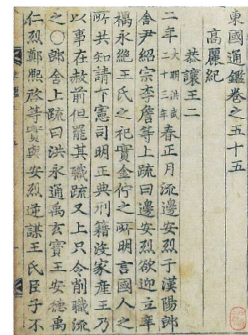 東國通鑑卷之五十五
高麗紀
恭讓王二
二年大明洪武二十三年春正月流邊安烈于漢陽郞
舍尹紹宗李詹等上疏曰邊安烈欲迎立辛
禑永絶王氏之祀實金佇之所明言國人之
所共知請下憲司明正典刑籍沒家産王乃
以事在赦前但罷其職疏又上只令削職流
之○郞舍上疏曰洪永通禹玄寶王安德禹
仁烈鄭熙啓等實與安烈逆謀王氏臣子不